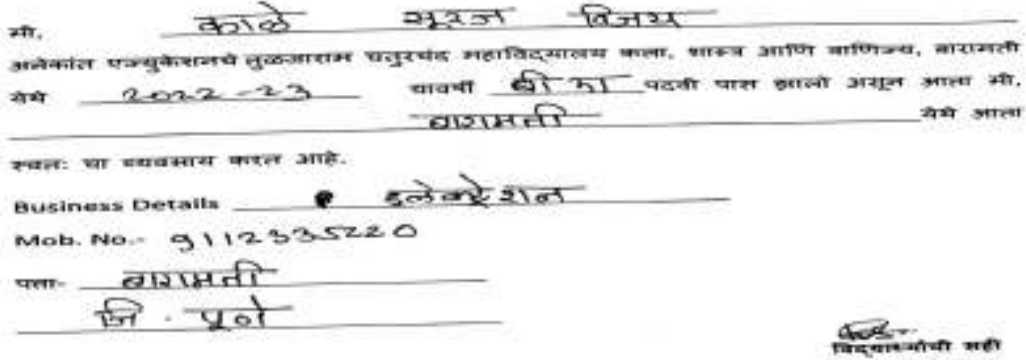 मी, काळे सूरज विजय
अनेकांत एज्युकेशनचे तुळजाराम चतुरचंद महाविद्यालय कला, शास्त्र आणि वाणिज्य, बारामती
येथे 2022-23 यावर्षी बी.ए पदवी पास झालो असून आता मी,
बारामती येथे आता
स्वतः चा व्यवसाय करत आहे.
Business Details इलेक्ट्रेशन
Mob. No.- 9112335220
पत्ता- बारामती
जि. पूणे
विद्यार्थ्याची सही